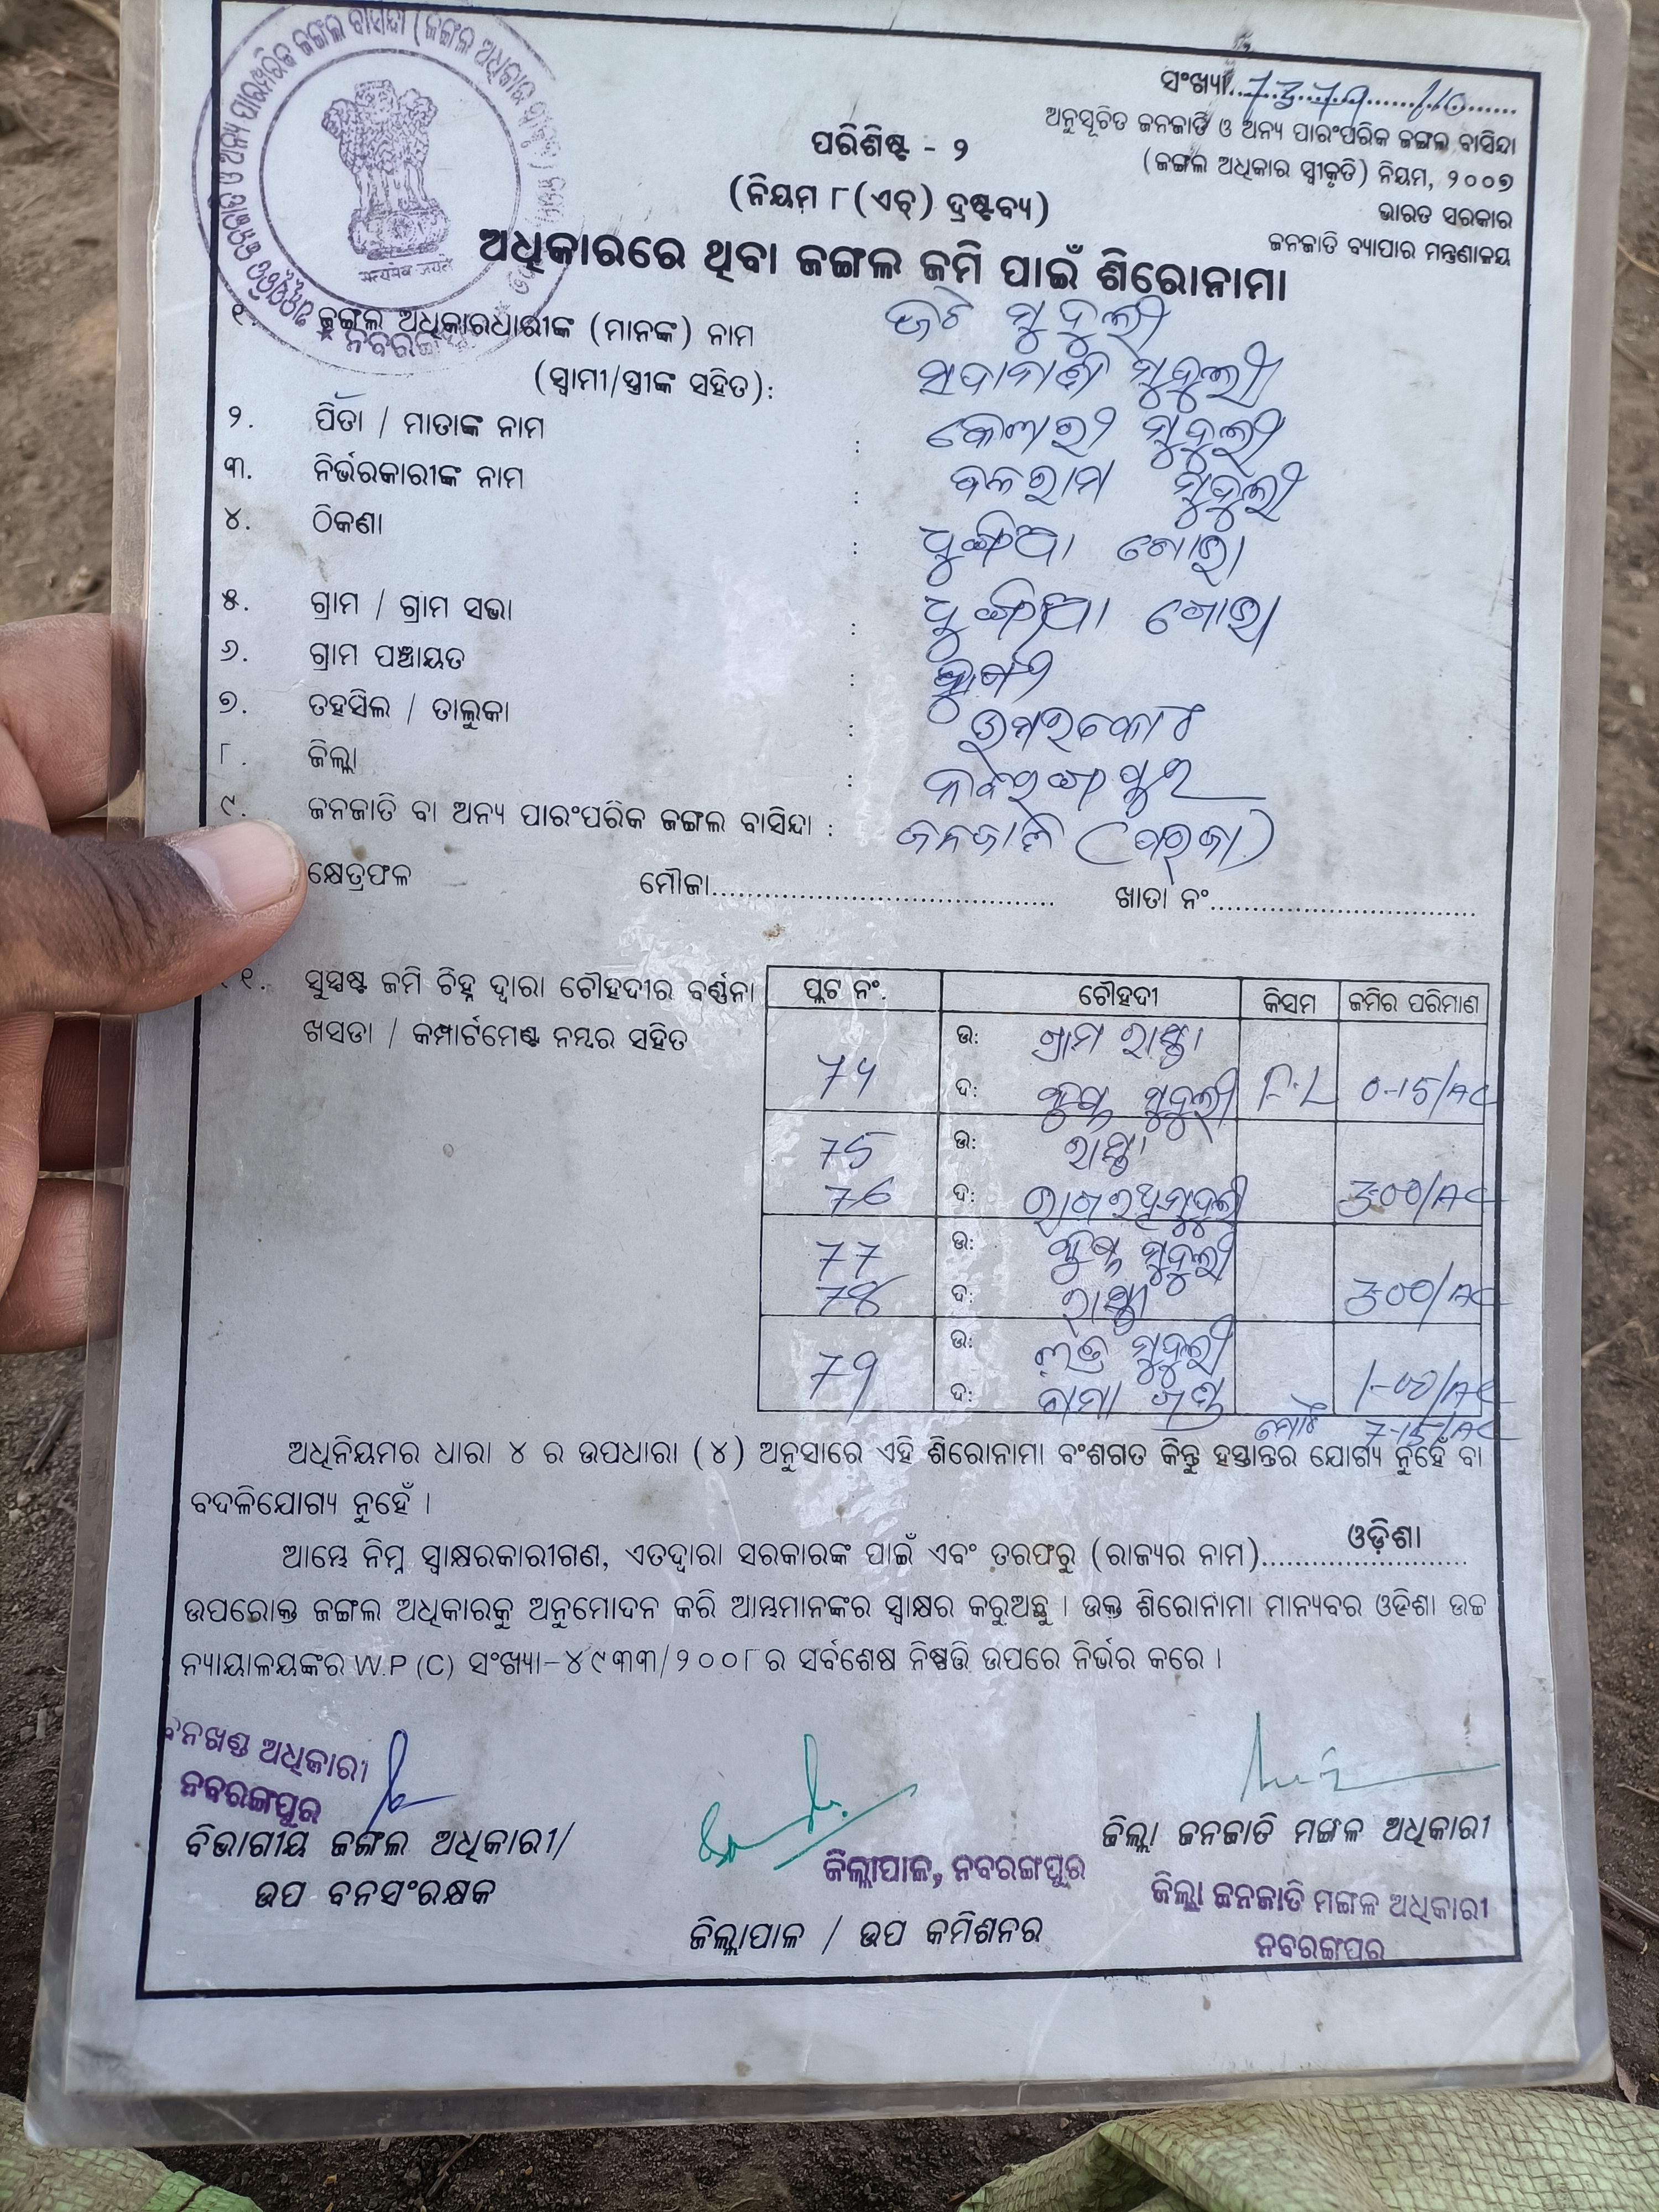 ସଂଖ୍ୟା..7379/10......
ଅନୁସୂଚିତ ଜନଜାତି ଓ ଅନ୍ୟ ପାରଂପରିକ ଜଙ୍ଗଲ ବାସିନ୍ଦା
(ଜଙ୍ଗଲ ଅଧିକାର ସ୍ୱୀକୃତି) ନିୟମ, ୨୦୦୭
ଭାରତ ସରକାର
ଜନଜାତି ବ୍ୟାପାର ମନ୍ତ୍ରଣାଳୟ
ପରିଶିଷ୍ଟ - ୨
(ନିୟମ ୮(ଏଚ୍) ଦ୍ରଷ୍ଟବ୍ୟ)
ଅଧିକାରରେ ଥିବା ଜଙ୍ଗଲ ଜମି ପାଇଁ ଶିରୋନାମା
सत्यमेव जयते
୧. ଜଙ୍ଗଲ ଅଧିକାରଧାରୀଙ୍କ (ମାନଙ୍କ) ନାମ ମୁଦୁଲୀ
(ସ୍ୱାମୀ/ସ୍ତ୍ରୀଙ୍କ ସହିତ): ମୁଦୁଲୀ
୨. ପିତା / ମାତାଙ୍କ ନାମ : ମୁଦୁଲୀ
୩. ନିର୍ଭରକାରୀଙ୍କ ନାମ : ବଳରାମ ମୁଦୁଲୀ
୪. ଠିକଣା :
୫. ଗ୍ରାମ / ଗ୍ରାମ ସଭା :
୬. ଗ୍ରାମ ପଞ୍ଚାୟତ :
୭. ତହସିଲ / ତାଲୁକା : ଉମରକୋଟ
୮. ଜିଲ୍ଲା : ନବରଙ୍ଗପୁର
୯. ଜନଜାତି ବା ଅନ୍ୟ ପାରଂପରିକ ଜଙ୍ଗଲ ବାସିନ୍ଦା : ଜନଜାତି (ପରଜା)
କ୍ଷେତ୍ରଫଳ ମୌଜା.................... ଖାତା ନଂ....................
୧୧. ସୁସ୍ପଷ୍ଟ ଜମି ଚିହ୍ନ ଦ୍ୱାରା ଚୌହଦୀର ବର୍ଣ୍ଣନା
ଖସଡା / କମ୍ପାର୍ଟମେଣ୍ଟ ନମ୍ବର ସହିତ
ପ୍ଲଟ ନଂ. ଚୌହଦୀ କିସମ ଜମିର ପରିମାଣ
74 ଉ: ଗ୍ରାମ ରାସ୍ତା
ଦ: ମୁଦୁଲୀ F.L 0-15/AC
75 ଉ: ରାସ୍ତା
76 ଦ: ମୁଦୁଲୀ 3-00/AC
77 ଉ: ମୁଦୁଲୀ
78 ଦ: ରାସ୍ତା 3-00/AC
79 ଉ: ମୁଦୁଲୀ
ଦ: 1-00/AC
ମୋଟ 7-15/AC
ଅଧିନିୟମର ଧାରା ୪ ର ଉପଧାରା (୪) ଅନୁସାରେ ଏହି ଶିରୋନାମା ବଂଶଗତ କିନ୍ତୁ ହସ୍ତାନ୍ତର ଯୋଗ୍ୟ ନୁହେଁ ବା
ବଦଳିଯୋଗ୍ୟ ନୁହେଁ ।
ଆମ୍ଭେ ନିମ୍ନ ସ୍ୱାକ୍ଷରକାରୀଗଣ, ଏତଦ୍ୱାରା ସରକାରଙ୍କ ପାଇଁ ଏବଂ ତରଫରୁ (ରାଜ୍ୟର ନାମ)........ଓଡ଼ିଶା........
ଉପରୋକ୍ତ ଜଙ୍ଗଲ ଅଧିକାରକୁ ଅନୁମୋଦନ କରି ଆମ୍ଭମାନଙ୍କର ସ୍ୱାକ୍ଷର କରୁଅଛୁ । ଉକ୍ତ ଶିରୋନାମା ମାନ୍ୟବର ଓଡିଶା ଉଚ୍ଚ
ନ୍ୟାୟାଳୟଙ୍କର W.P (C) ସଂଖ୍ୟା-୪୯୩୩/୨୦୦୮ର ସର୍ବଶେଷ ନିଷ୍ପତ୍ତି ଉପରେ ନିର୍ଭର କରେ ।
ବନଖଣ୍ଡ ଅଧିକାରୀ
ନବରଙ୍ଗପୁର
ବିଭାଗୀୟ ଜଙ୍ଗଲ ଅଧିକାରୀ/
ଉପ ବନସଂରକ୍ଷକ
ଜିଲ୍ଲାପାଳ, ନବରଙ୍ଗପୁର
ଜିଲ୍ଲାପାଳ / ଉପ କମିଶନର
ଜିଲ୍ଲା ଜନଜାତି ମଙ୍ଗଳ ଅଧିକାରୀ
ଜିଲ୍ଲା ଜନଜାତି ମଙ୍ଗଳ ଅଧିକାରୀ
ନବରଙ୍ଗପୁର